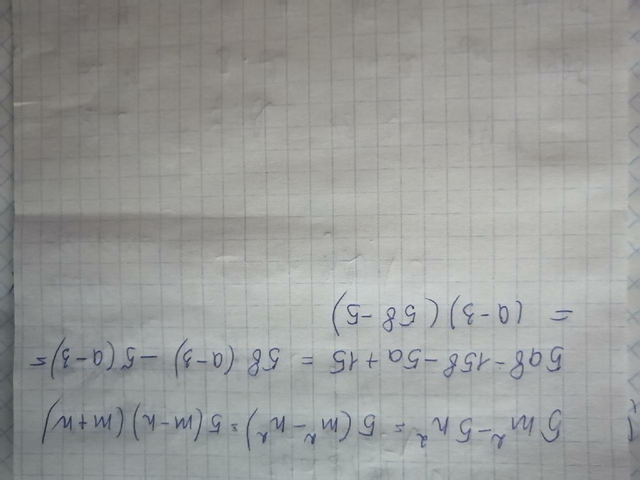 5m²-5n² = 5(m²-n²) = 5(m-n)(m+n)
5ab-15b-5a+15 = 5b(a-3)-5(a-3)=
= (a-3)(5b-5)